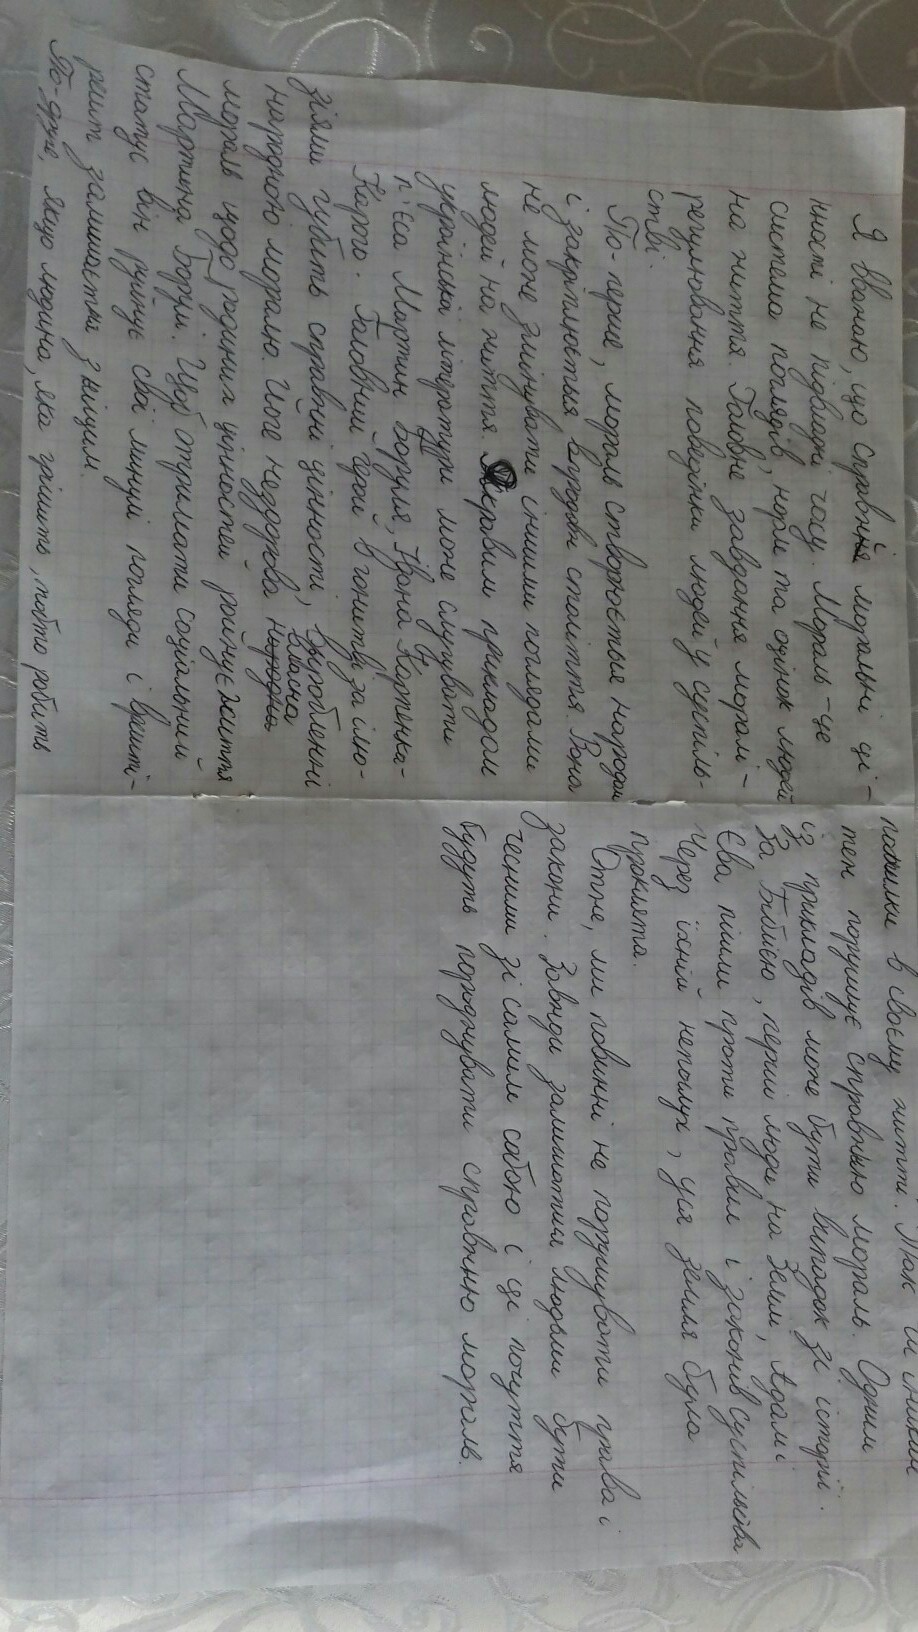 Я вважаю, що справжні моральні ці-
нності не підвладні часу. Мораль - це
система поглядів, норм та оцінок людей
на життя. Головне завдання моралі -
регулювання поведінки людей у суспіль-
стві.
По-перше, мораль створюється народом
і закріплюється впродовж століття. Вона
не може змінювати іншими поглядами
людей на життя. Яскравим прикладом
української літератури може слугувати
п'єса Мартин Боруля, Івана Карпенка-
Карого. Головний герой в гонитві за ілю-
зіями губить справжні цінності, вироблені
народною мораллю. Його нездорова власна
мораль щодо родинних цінностей руйнує життя
Мартина Борулі. Щоб отримати соціальний
статус він руйнує свої минулі погляди і врешті-
решт залишається знищим.
По-друге, якщо людина, яка грішить, тобто робить
помилки в своєму житті. Так чи інакше
порушує справжню мораль. Одним
із прикладів може бути випадок зі історії.
За Біблією, перші люди на Землі, Адам і
Єва пішли проти правил і законів суспільства
Через їхній непослух, уся земля була
проклята.
Отже, ми повинні не порушувати права і
закони. Завжди залишатися людьми бути
чесними зі самим собою і ці почуття
будуть породжувати справжню мораль.